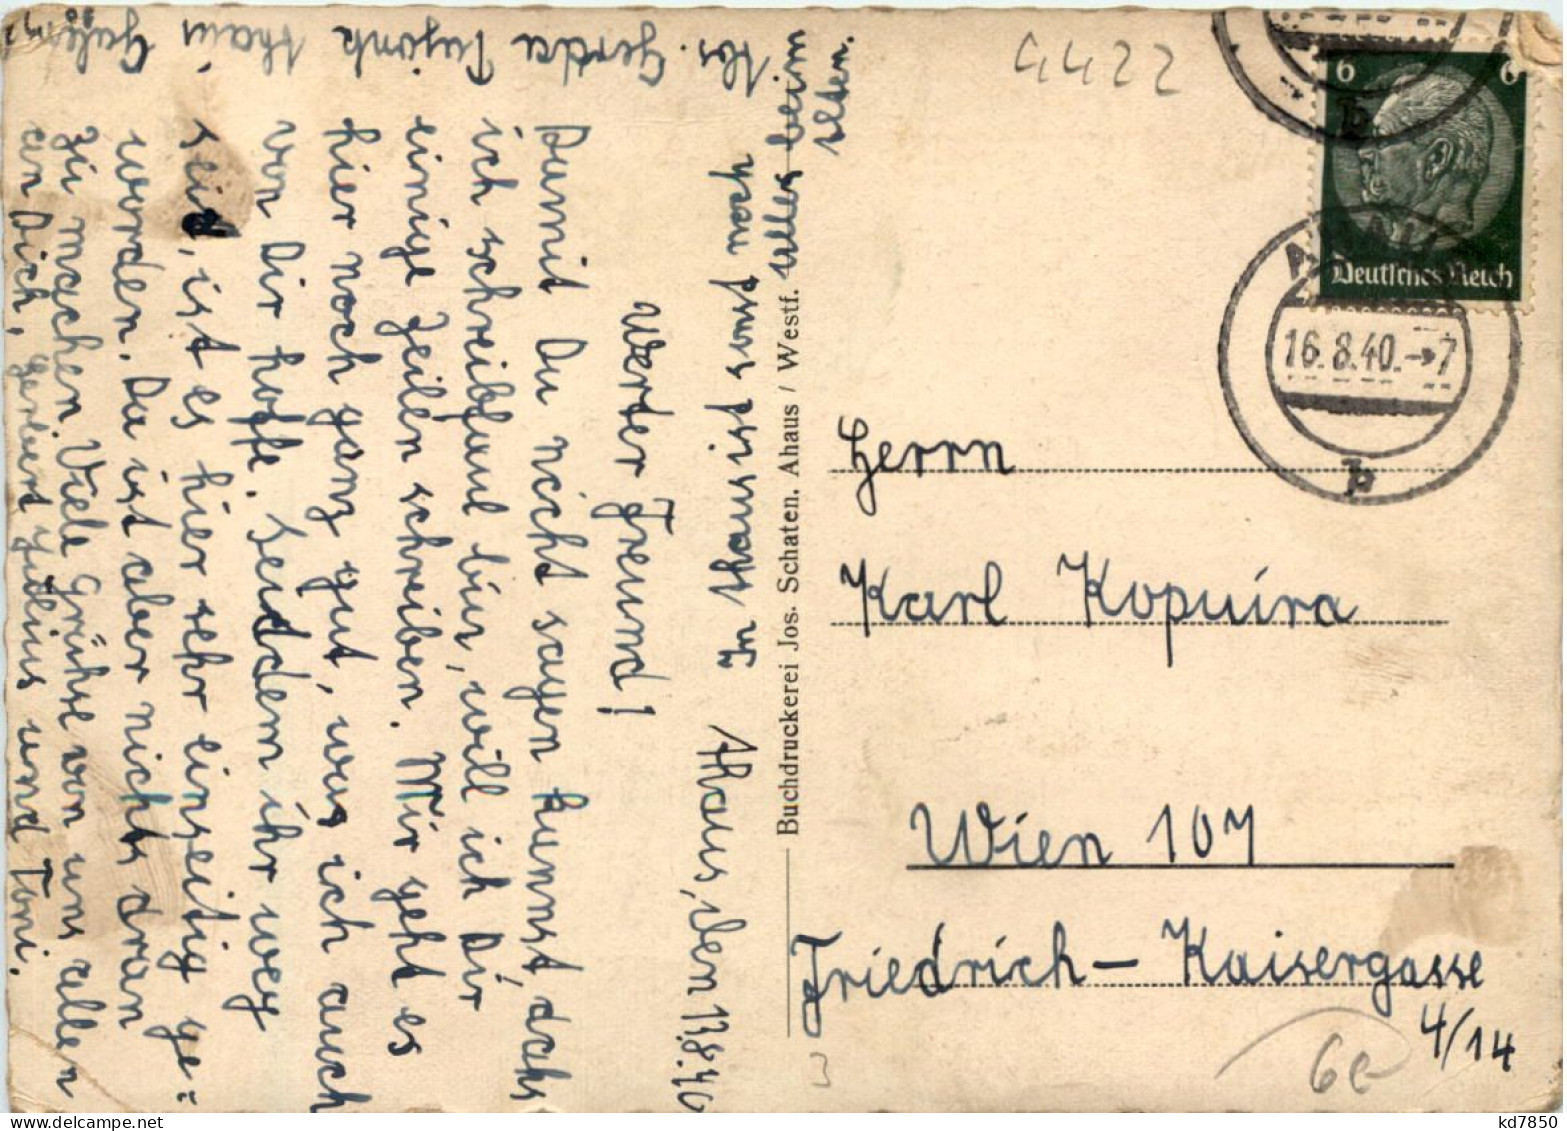 Ahaus, den 13.8.40
In Ahaus ist sonst noch
alles beim
Alten.
Werter Freund!
Damit Du nicht sagen kannst, dahs
ich schreibfaul bin, will ich Dir
einige Zeilen schreiben. Mir geht es
hier noch ganz gut, was ich auch
von Dir hoffe. Seitdem ihr weg
seid, ist es hier sehr einseitig ge=
worden. Da ist aber nichts dran
zu machen. Viele Grühse von uns allen
an Dich, Herbert Julius und Toni.
Abs. Gerda
Ahaus
Buchdruckerei Jos. Schaten, Ahaus / Westf.
4422
6 6
Deutsches Reich
16.8.40.-7
b
b
Herrn
Karl Kopuira
Wien 107
Friedrich-Kaisergasse
4/14
6e
3
kd7850